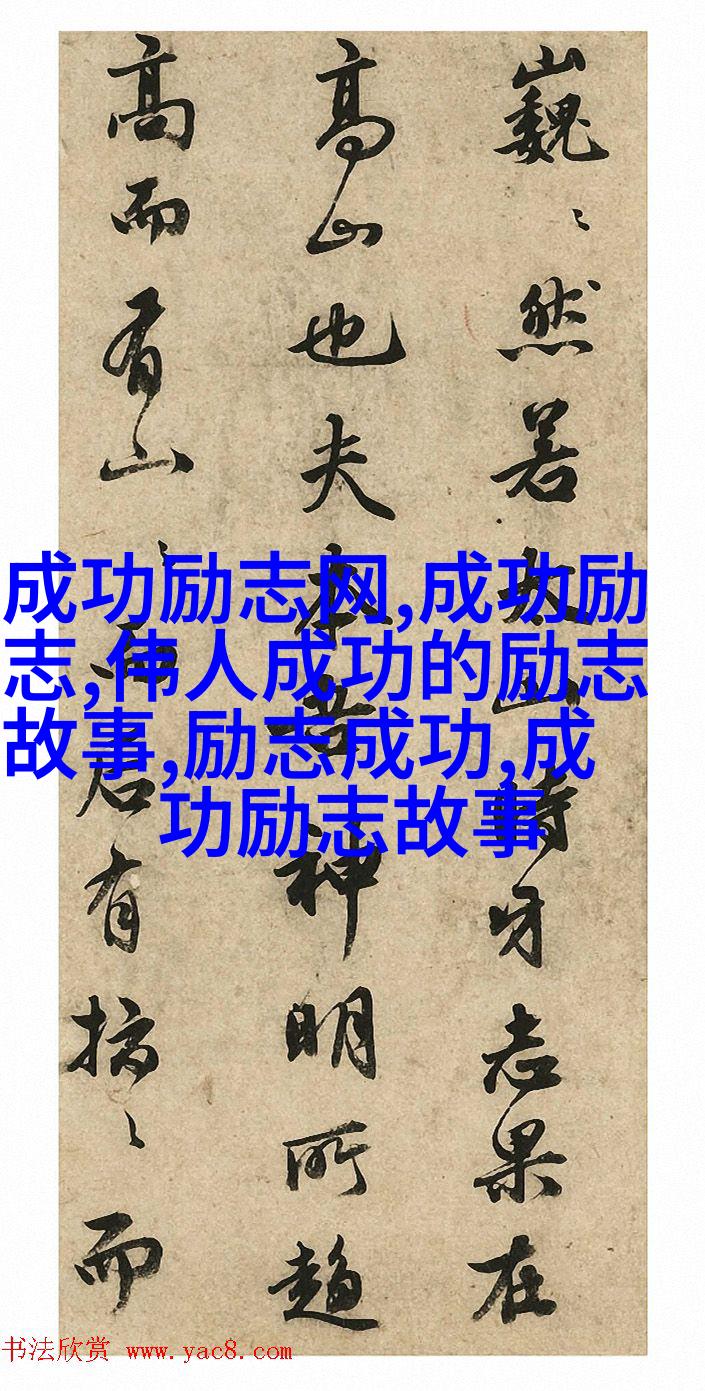 巍〻然若太山時牙志果在
高山也夫神明所趨
高而有山〻而有〻而
成功励志网,成功励
志,伟人成功的励志
故事,励志成功,成
功励志故事
书法欣赏 www.yac8.com